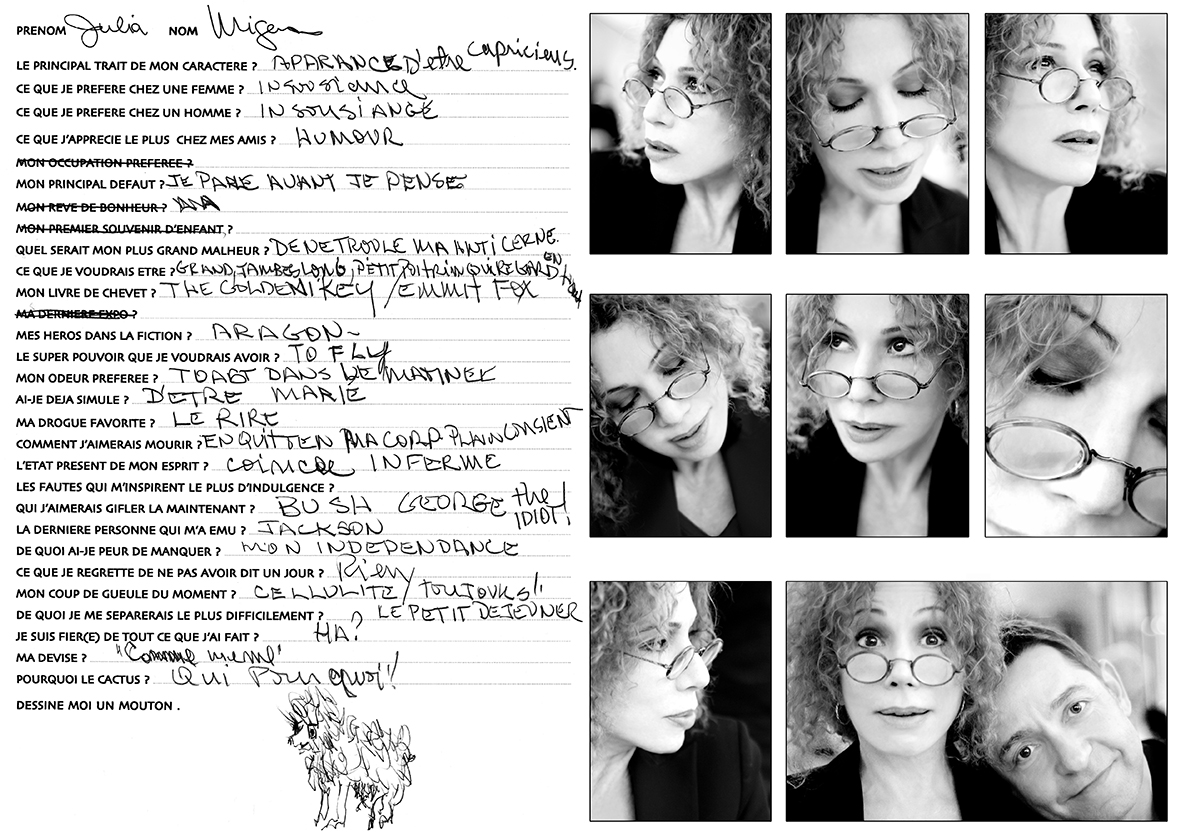 PRENOM Julia NOM Migen
LE PRINCIPAL TRAIT DE MON CARACTERE ? APARANCE D'etre capricieus.
CE QUE JE PREFERE CHEZ UNE FEMME ? insousiance
CE QUE JE PREFERE CHEZ UN HOMME ? INSOUSIANCE
CE QUE J'APPRECIE LE PLUS CHEZ MES AMIS ? HUMOUR
MON OCCUPATION PREFEREE ?
MON PRINCIPAL DEFAUT ? JE PARLE AVANT JE PENSE
MON REVE DE BONHEUR ?
MON PREMIER SOUVENIR D'ENFANT ?
QUEL SERAIT MON PLUS GRAND MALHEUR ? DE NE TROUVLE MA ANTI CERNE.
CE QUE JE VOUDRAIS ETRE ? GRAND, JAMBES LONG, PETIT POITRIN QUI REGARD EN HAUT
MON LIVRE DE CHEVET ? THE GOLDEN KEY / EMMIT FOX
MA DERNIERE EXPO ?
MES HEROS DANS LA FICTION ? ARAGON
LE SUPER POUVOIR QUE JE VOUDRAIS AVOIR ? TO FLY
MON ODEUR PREFEREE ? TOAST DANS LE MATINEE
AI-JE DEJA SIMULE ? D'ETRE MARIÉ
MA DROGUE FAVORITE ? LE RIRE
COMMENT J'AIMERAIS MOURIR ? EN QUITTEN MA CORP PLAIN CONSIENT
L'ETAT PRESENT DE MON ESPRIT ? INFERME
LES FAUTES QUI M'INSPIRENT LE PLUS D'INDULGENCE ?
QUI J'AIMERAIS GIFLER LA MAINTENANT ? BUSH GEORGE the IDIOT!
LA DERNIERE PERSONNE QUI M'A EMU ? JACKSON
DE QUOI AI-JE PEUR DE MANQUER ? MON INDEPENDANCE
CE QUE JE REGRETTE DE NE PAS AVOIR DIT UN JOUR ? Rien
MON COUP DE GUEULE DU MOMENT ? CELLULITE / TOUJOURS!!
DE QUOI JE ME SEPARERAIS LE PLUS DIFFICILEMENT ? LE PETIT DEJEUNER
JE SUIS FIER(E) DE TOUT CE QUE J'AI FAIT ? HA?
MA DEVISE ? "Comme meme"
POURQUOI LE CACTUS ? Qui Pourquoi!!
DESSINE MOI UN MOUTON .